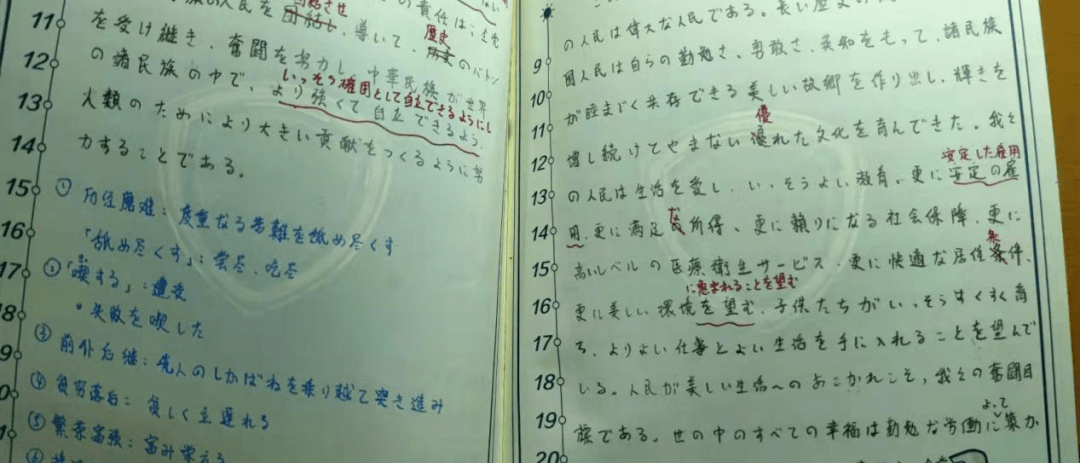 の責任は、全党
の人民を団結し、導いて、
団結させ
歴史
のバトン
11 を受け継ぎ、奮闘を努力し、中華民族が世界
12 の諸民族の中で、より強くて自立できるよう、
いっそう確固として自立できるようにし
13 人類のためにより大きい貢献をつくるように努
14 力することである。
15 ① 历经磨难：度重なる苦難を舐め尽くす
16 「舐め尽くす」：尝尽、吃尽
17 ②「喫する」：遭受
18 ・失敗を喫した
19 ③ 前仆后继：先人のしかばねを乗り越て突き進み
④ 贫穷落后：貧しく立遅れる
⑤ 繁荣富强：富み栄える
⑥
の人民は偉大な人民である。長い歴史の
9 国人民は自らの勤勉さ、勇敢さ、英知をもって、諸民族
10 が睦まじく共存できる美しい故郷を作り出し、輝きを
優
11 増し続けてやまない優れた文化を育んできた。我々
安定した雇用
12 の人民は生活を愛し、いっそうよい教育、更に安定の雇
13 用、更に満足な所得、更に頼りになる社会保障、更に
な
条
14 高いレベルの医療衛生サービス、更に快適な居住条件、
に恵まれることを望む
15 更に美しい環境を望む、子供たちがいっそうすくすく育
16 ち、よりよい仕事とよい生活を手に入れることを望んで
17 いる。人民が美しい生活へのあこがれこそ、我々の奮闘目
18 標である。世の中のすべての幸福は勤勉な労働に築か
よって
19
20